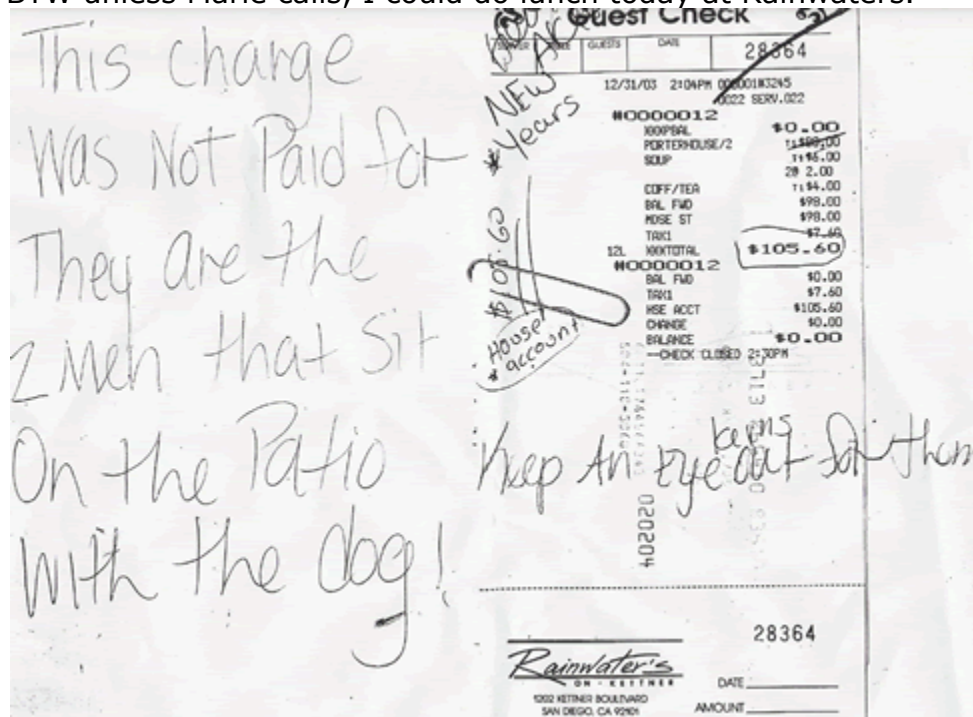 BTW unless Marie calls, I could do lunch today at Rainwaters.
This charge
Was Not Paid for
They Are the
2 Men that Sit
On the Patio
With the dog!
Guest Check
GUESTS DATE 28364
12/31/03 2:04PM
0022 SERV.022
#0000012
XXXPBAL $0.00
PORTERHOUSE/2
SOUP T1$6.00
2@ 2.00
COFF/TEA T1$4.00
BAL FWD $98.00
MDSE ST $98.00
TAX1 $7.60
12L XXXTOTAL $105.60
#0000012
BAL FWD $0.00
TAX1 $7.60
HSE ACCT $105.60
CHANGE $0.00
BALANCE $0.00
--CHECK CLOSED 2:30PM
NEW
* Years
$105.60
House
* account
Keep An Eye out for them
402020
28364
Rainwater's
ON · KETTNER
1202 KETTNER BOULEVARD
SAN DIEGO, CA 92101
DATE
AMOUNT